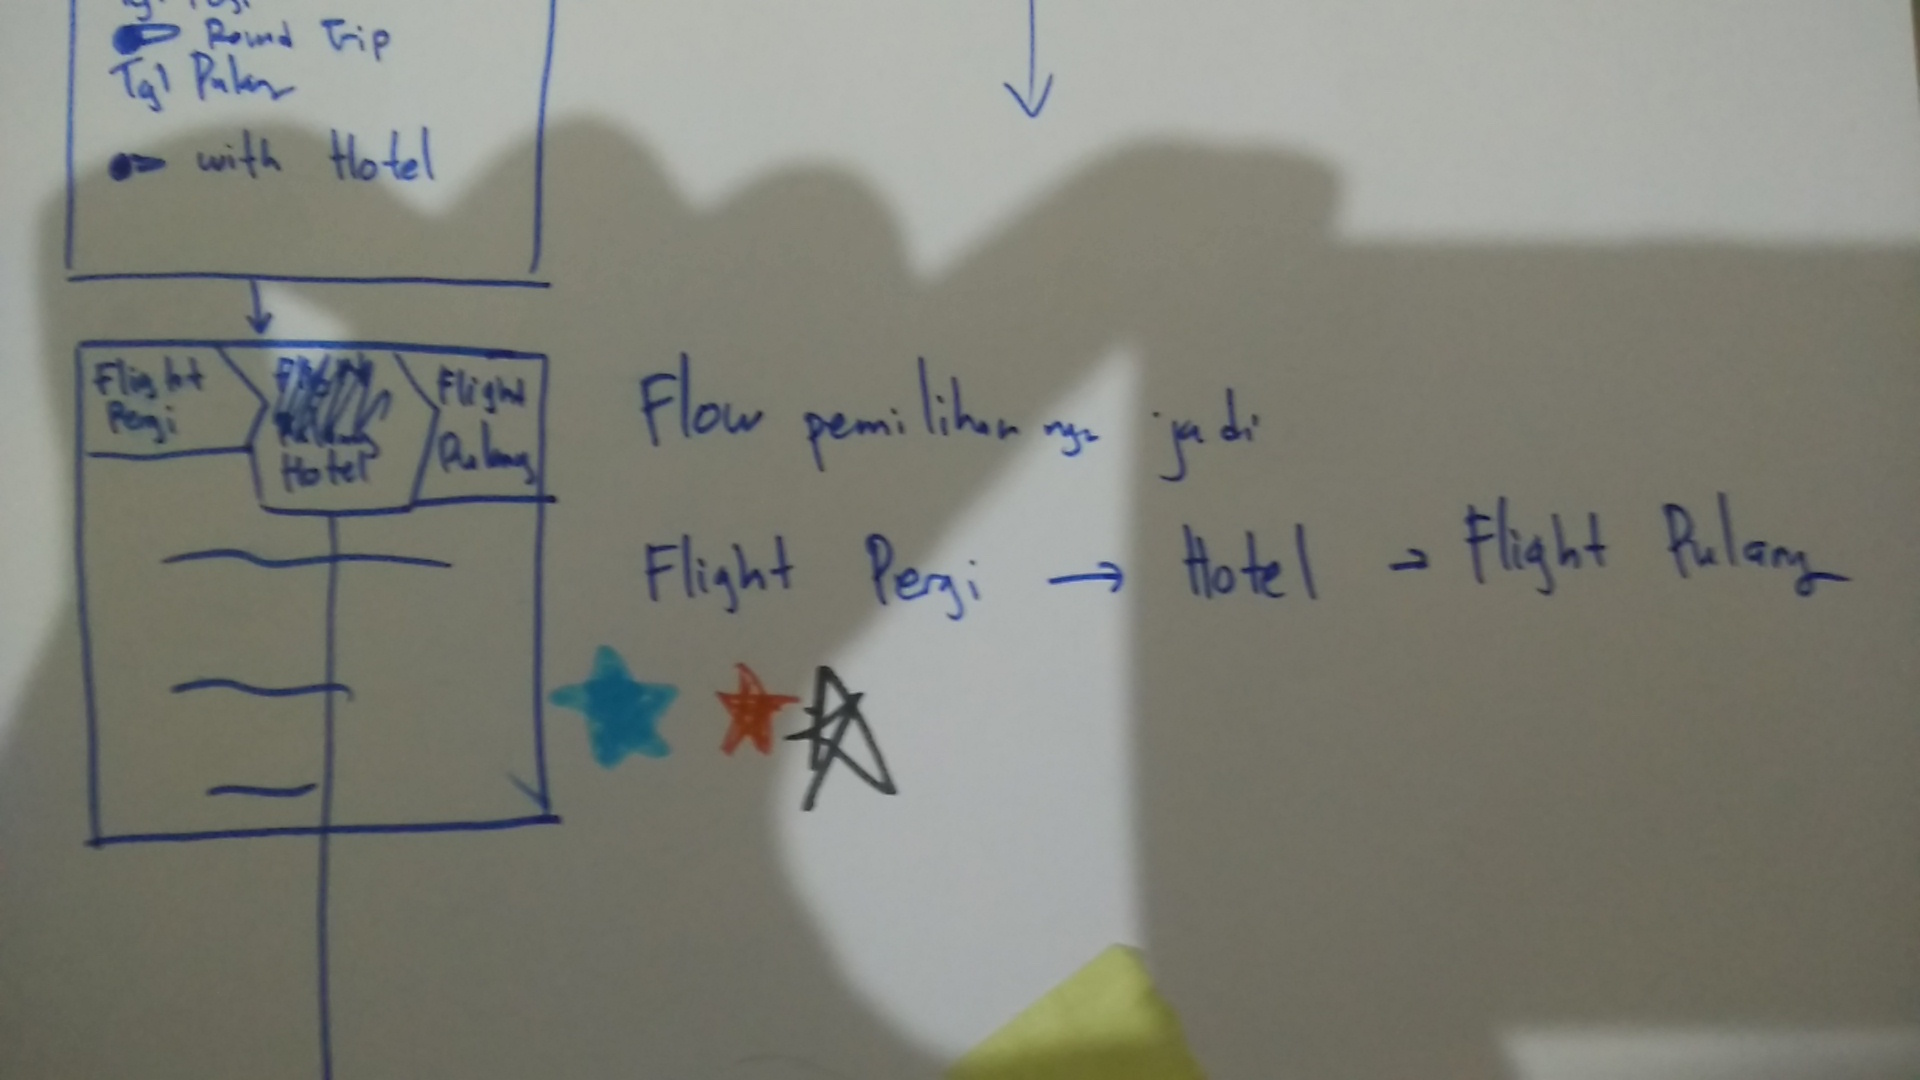 Round Trip
Tgl Pulang
with Hotel
Flight
Pergi
Hotel
Flight
Pulang
Flow pemilihannya jadi
Flight Pergi → Hotel → Flight Pulang